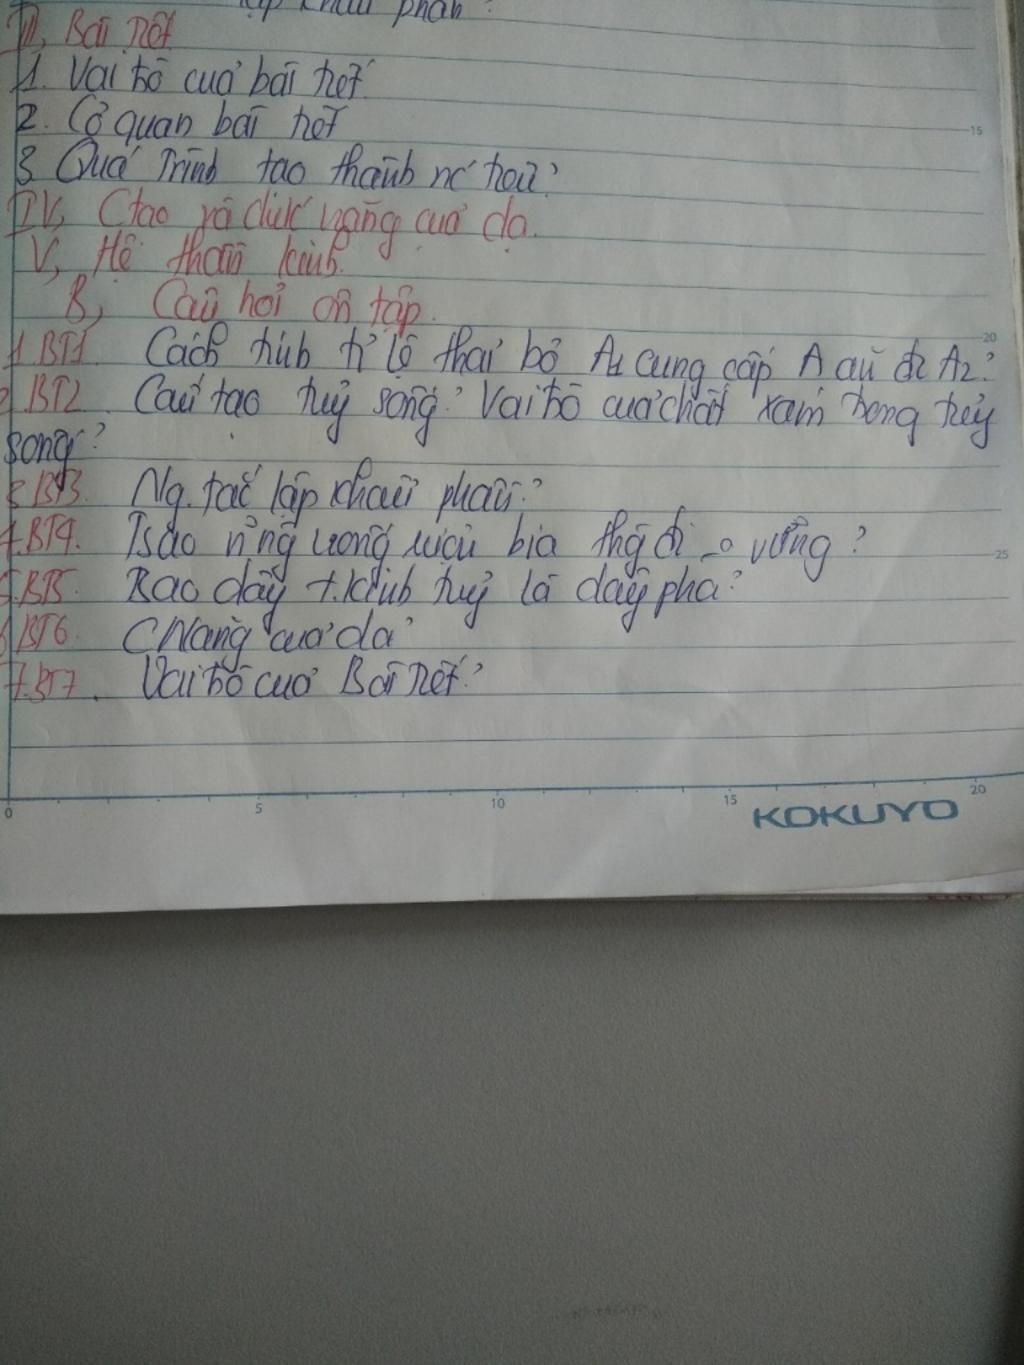 lập khẩu phần?
III, Bài tiết
1. Vai trò của bài tiết
2. Cơ quan bài tiết
3. Quá trình tạo thành nc tiểu?
IV, Ctạo và chức năng của da.
V, Hệ thần kinh.
B, Câu hỏi ôn tập.
1.BT1. Cách tính tỉ lệ thải bỏ A1 cung cấp A ăn đc A2?
2.BT2. Cấu tạo tuỷ sống? Vai trò của chất xám trong tuỷ
sống?
3.BT3. Ng. tắc lập khẩu phần?
4.BT4. Tsao n~ng uống rượu bia thg đi _o vững?
5.BT5. Bao dây t.kinh tuỷ là dây pha?
6.BT6. CNăng của da?
7.BT7. Vai trò của Bài tiết?
0 5 10 15 20
15
20
25
KOKUYO